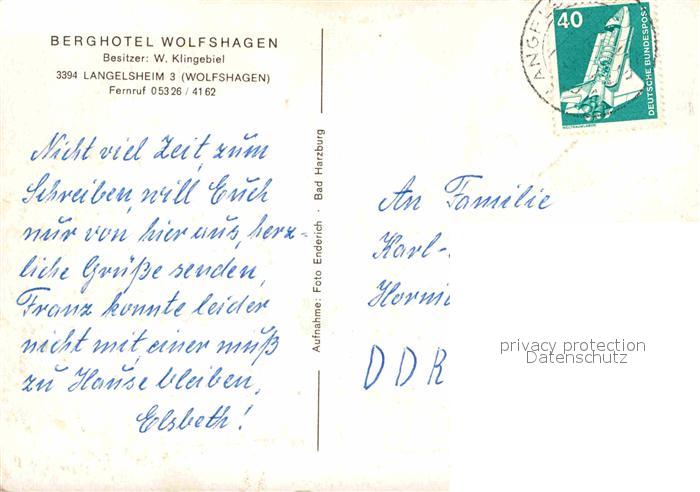 BERGHOTEL WOLFSHAGEN
Besitzer: W. Klingebiel
3394 LANGELSHEIM 3 (WOLFSHAGEN)
Fernruf 05326 / 4162
Nicht viel Zeit zum
Schreiben, will Euch
nur von hier aus, herz-
liche Grüße senden,
Franz konnte leider
nicht mit, einer muß
zu Hause bleiben,
Elsbeth!
Aufnahme: Foto Enderich · Bad Harzburg
LANGEL
40
DEUTSCHE BUNDESPOST
WELTRAUMLABOR
An Familie
Karl-
Horni
DDR
privacy protection
Datenschutz